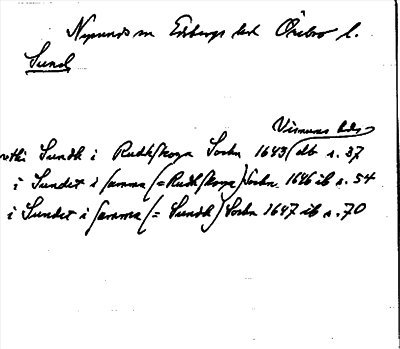 Nysunds sn Edsbergs hd Örebro l.
Sund
Visnums hds
vthi Sundh i Rudhskoga Sochn 1643 (db s. 37
i Sundet i samma (= Rudhskoga) Sochn 1646 ib s. 54
i Sundet i samma (= Sundh) Sochn 1647 ib s. 70